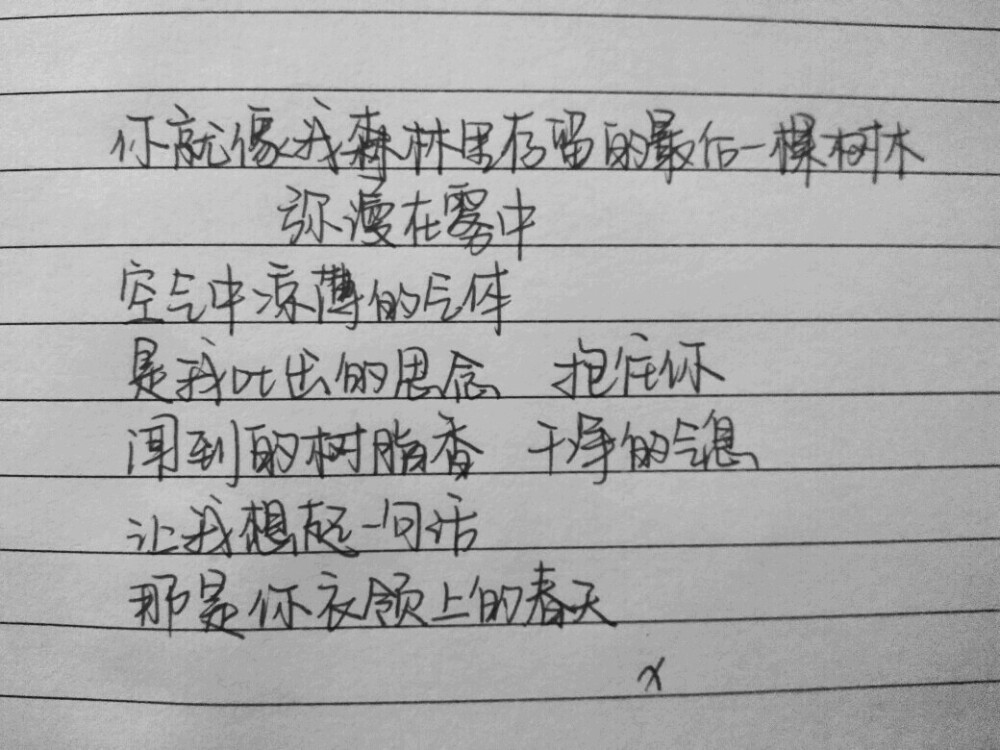 你就像我森林里存留的最后一棵树木
弥漫在雾中
空气中凉薄的气体
是我吐出的思念 抱住你
闻到的树脂香 干净的气息
让我想起一句话
那是你衣领上的春天
x